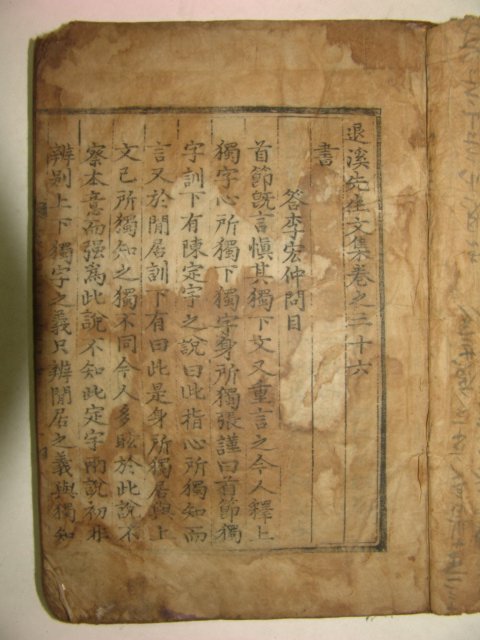 退溪先生文集卷之三十六
書
答李宏仲問目
首節旣言愼其獨下文又重言之今人釋上
獨字心所獨下獨字身所獨張謹曰首節獨
字訓下有陳定字之說曰此指心所獨知而
言又於閒居訓下有曰此是身所獨居與上
文己所獨知之獨不同今人多眩於此說不
察本意而强爲此說不知此定字兩說初非
辨別上下獨字之義只辨閒居之義與獨知